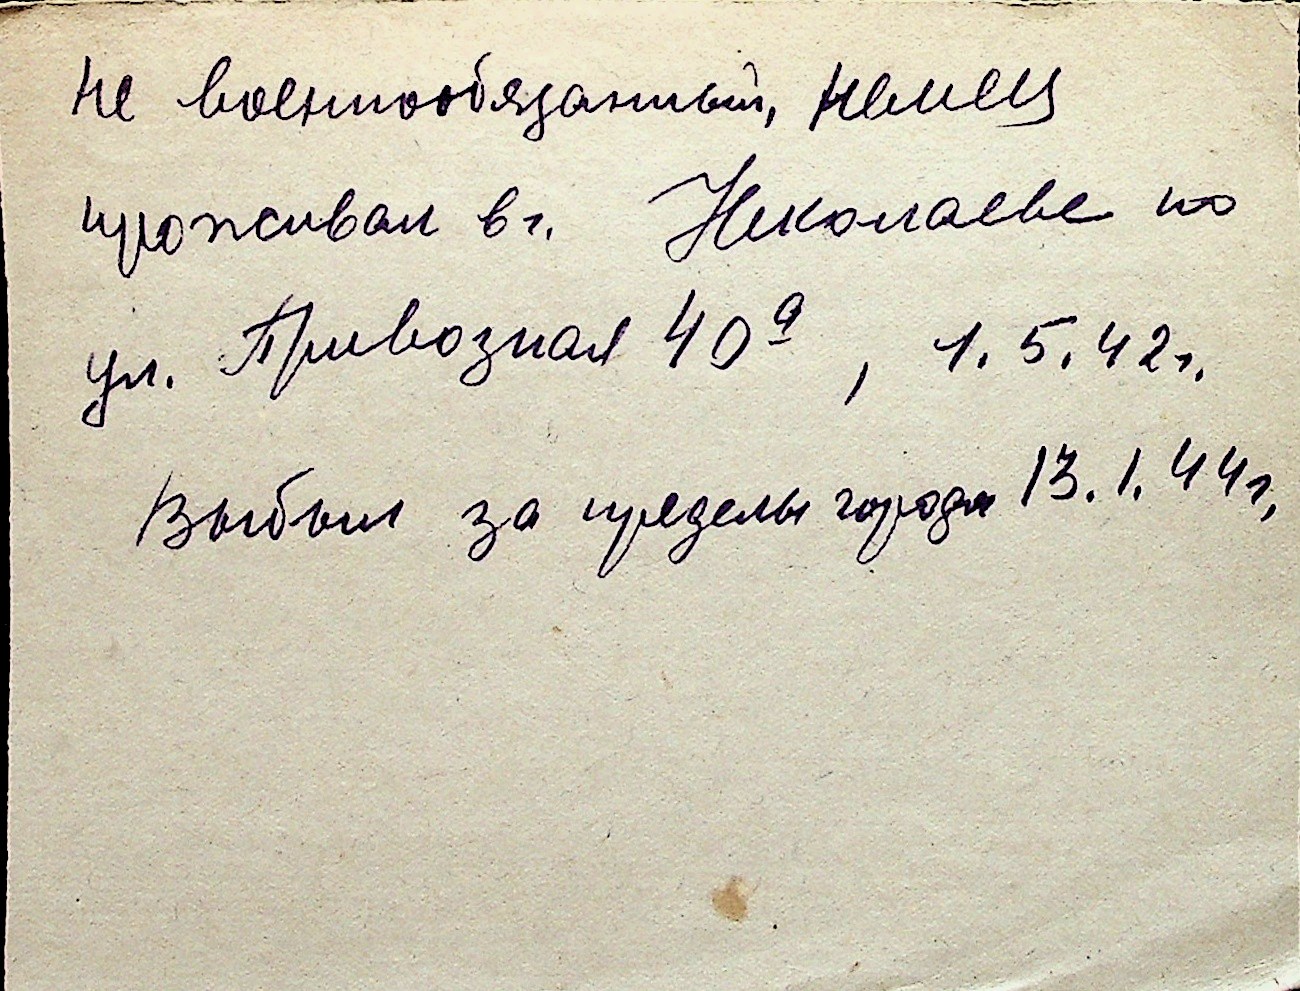 не военнообязанный, немец
проживал в г. Николаеве по
ул. Привозная 40а, 1.5.42г.
Выбыл за пределы города 13.1.44г,